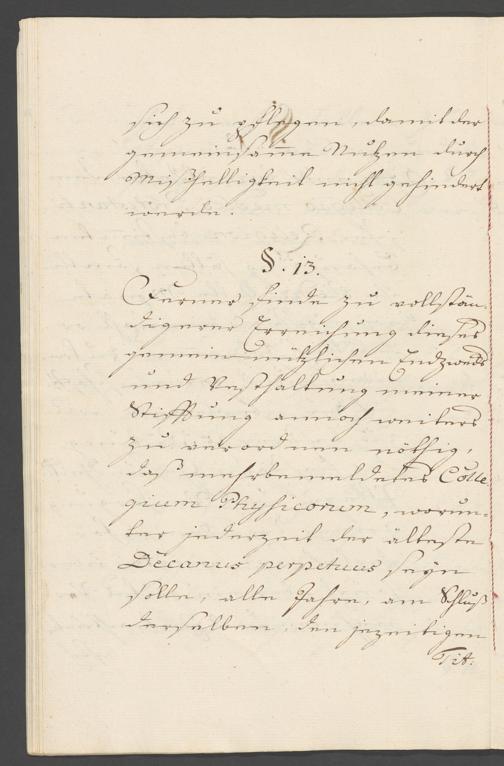 sich zu pflegen, damit der
gemeinsamme Nutzen durch
Mißhelligkeit nicht gehindert
werde.
§. 13.
Ferner finde zu vollstän-
digerer Erreichung dieses
gemein-nützlichen Endzwecks
und Vesthaltung meiner
Stifftung annoch weiters
zu verordnen nöthig,
daß mehrbemeldetes Colle
gium Physicorum, worun-
ter jederzeit der älteste
Decanus perpetuus seyn
solle, alle Jahre, am Schluß
derselben, den jezeitigen
Tit.